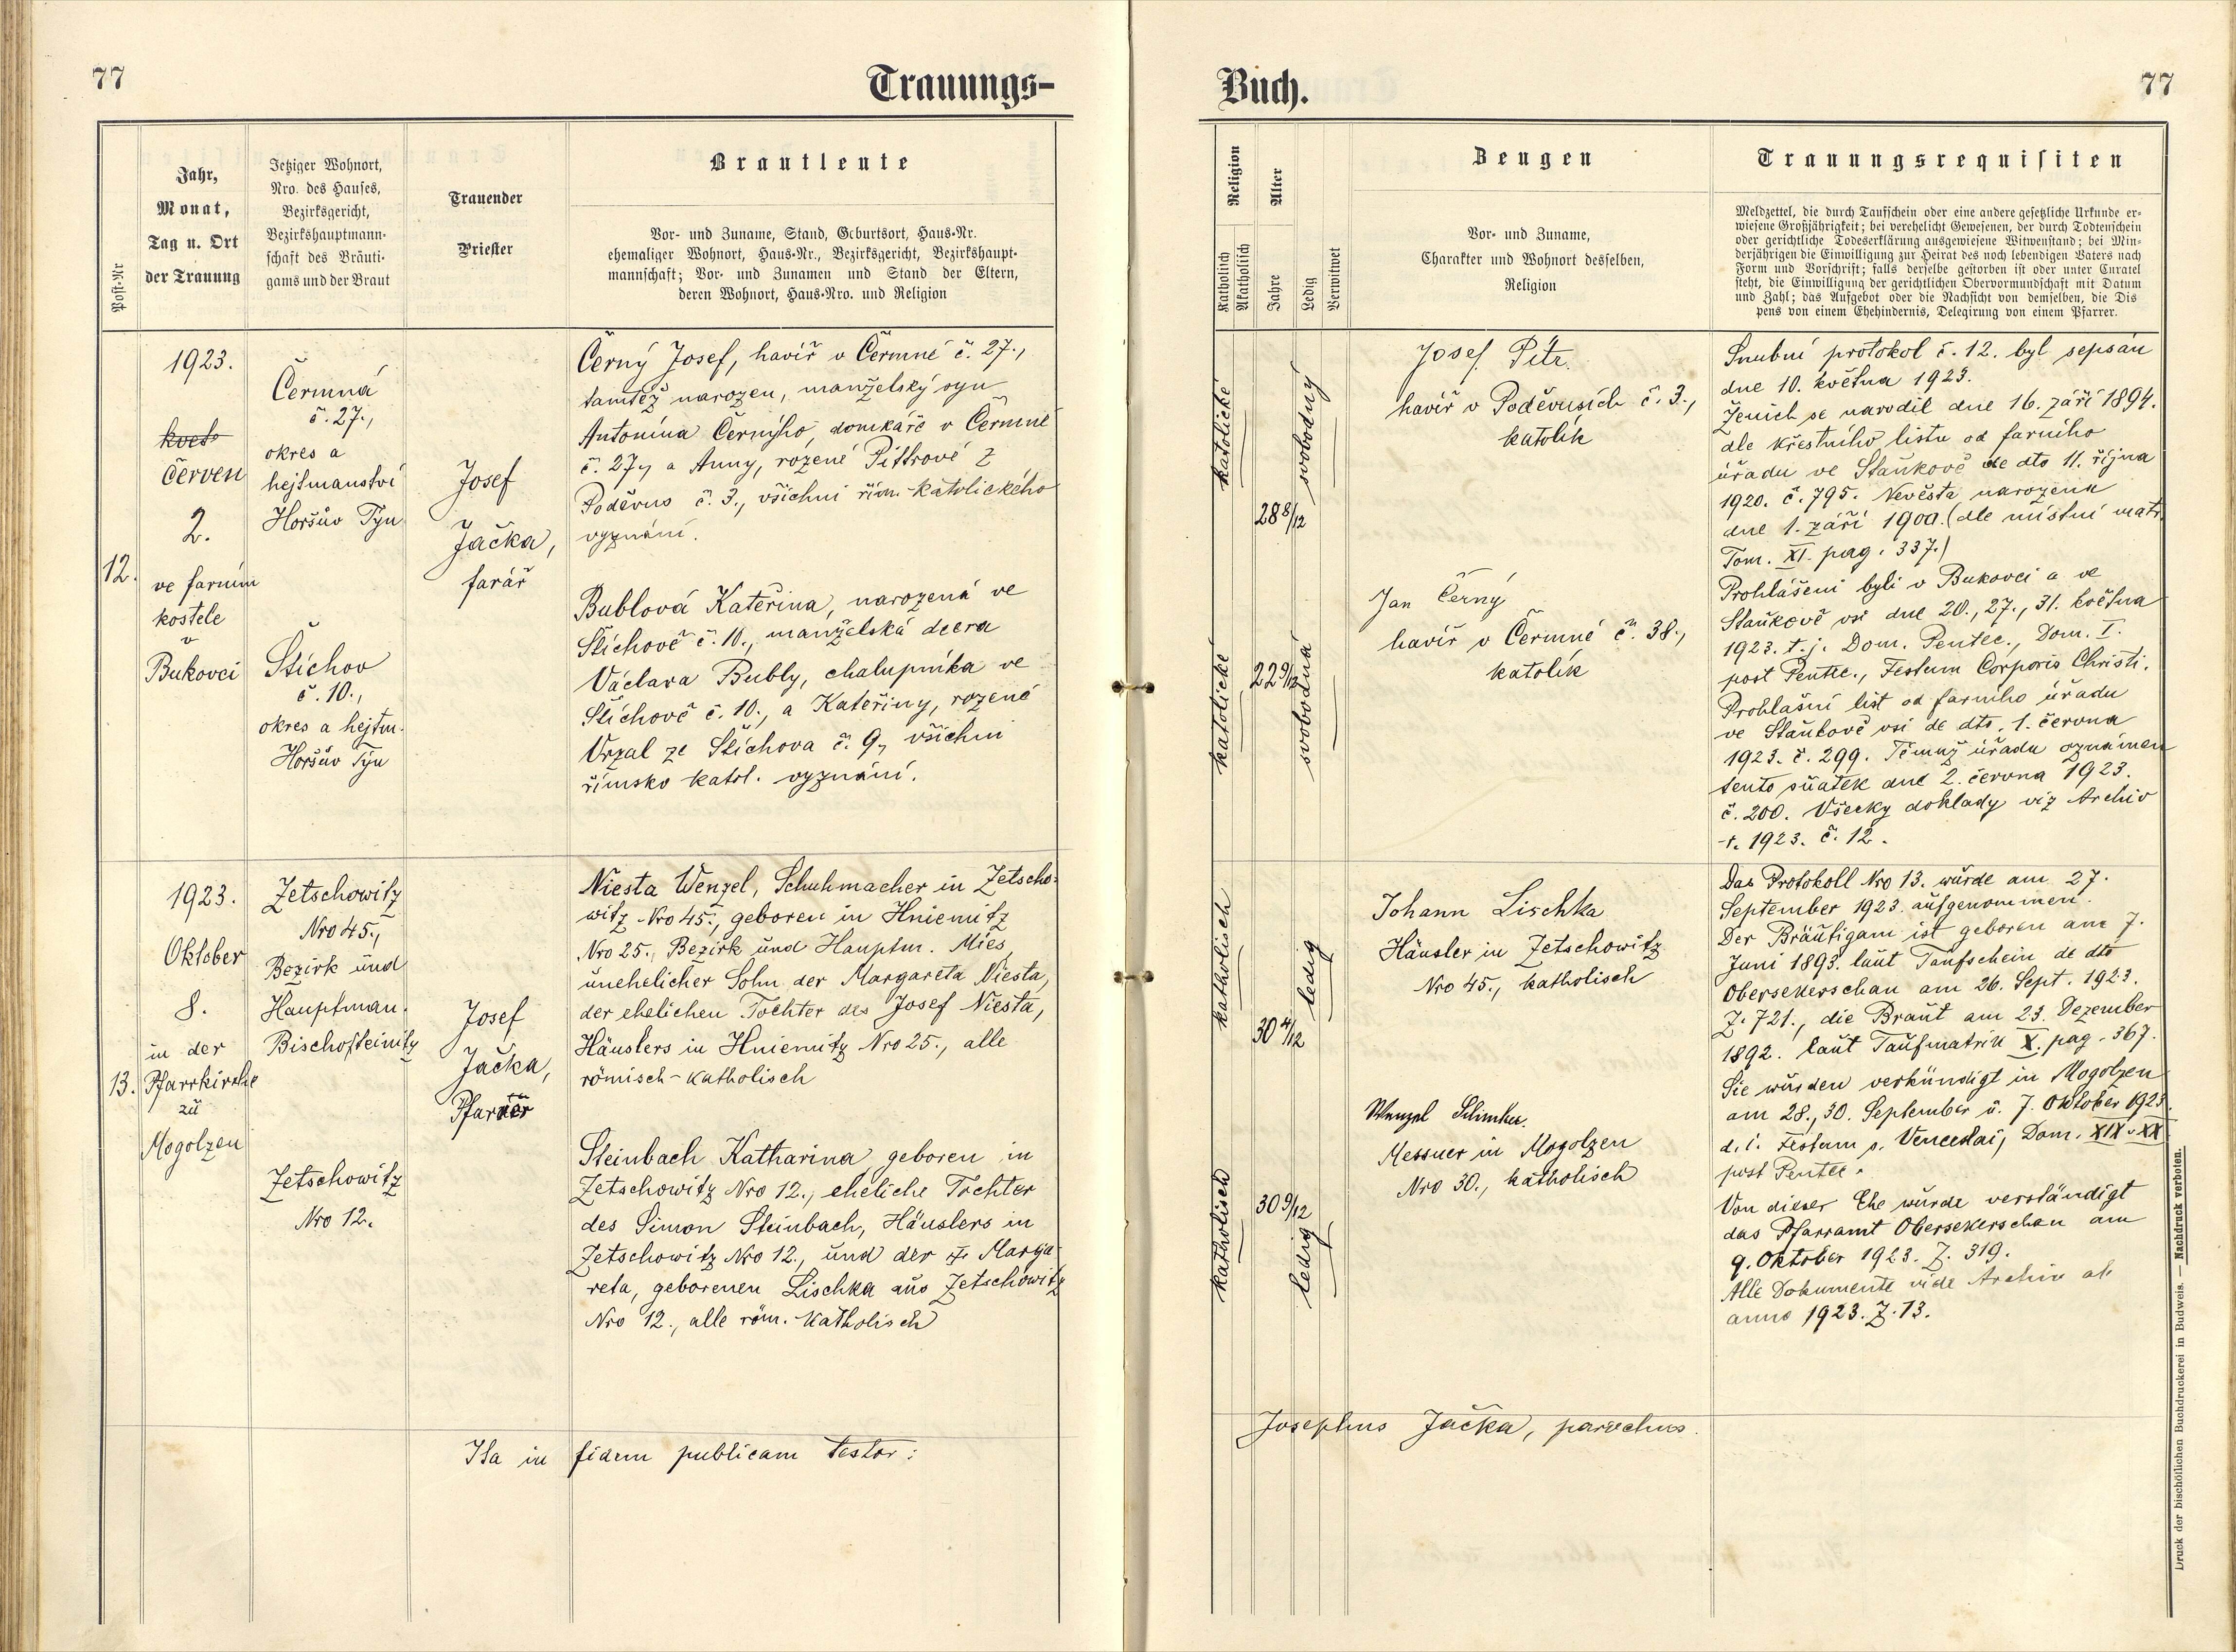 77
Trauungs-
Post-Nr
Jahr,
Monat,
Tag u. Ort
der Trauung
Jetziger Wohnort,
Nro. des Hauses,
Bezirksgericht,
Bezirkshauptmann-
schaft des Bräuti-
gams und der Braut
Trauender
Priester
Brautleute
Vor- und Zuname, Stand, Geburtsort, Haus-Nr.
ehemaliger Wohnort, Haus-Nr., Bezirksgericht, Bezirkshaupt-
mannschaft; Vor- und Zunamen und Stand der Eltern,
deren Wohnort, Haus-Nro. und Religion
12.
1923.
květ
Červen
2.
ve farním
kostele
v
Bukovci
Čermná
č. 27.,
okres a
hejtmanství
Horšův Týn
Štichov
č. 10.,
okres a hejtm.
Horšův Týn
Josef
Jačka,
farář
Černý Josef, havíř v Čermné č. 27.,
tamtéž narozen, manželský syn
Antonína Černýho, domkáře v Čermné
č. 27, a Anny, rozené Pittrové z
Poděvus č. 3., všichni řím.-katolického
vyznání.
Bublová Kateřina, narozená ve
Štichově č. 10., manželská dcera
Václava Bubly, chalupníka ve
Štichově č. 10., a Kateřiny, rozené
Vrzal ze Štichova č. 9, všichni
římsko katol. vyznání.
13.
1923.
Oktober
8.
in der
Pfarrkirche
zu
Mogolzen
Zetschowitz
Nro 45.,
Bezirk und
Hauptman.
Bischofteinitz
Zetschowitz
Nro 12.
Josef
Jačka,
Pfarrer
Niesta Wenzel, Schuhmacher in Zetscho-
witz Nro 45., geboren in Hniemitz
Nro 25., Bezirk und Hauptm. Mies,
unehelicher Sohn der Margareta Niesta,
der ehelichen Tochter des Josef Niesta,
Häuslers in Hniemitz Nro 25., alle
römisch-katholisch
Steinbach Katharina geboren in
Zetschowitz Nro 12., eheliche Tochter
des Simon Steinbach, Häuslers in
Zetschowitz Nro 12., und der † Marga-
reta, geborenen Lischka aus Zetschowitz
Nro 12., alle röm. katholisch
Ita in fidem publicam testor:
Buch.
77
Religion
Katholisch
Akatholisch
Alter
Jahre
Ledig
Verwitwet
Zeugen
Vor- und Zuname,
Charakter und Wohnort desselben,
Religion
Trauungsrequisiten
Meldzettel, die durch Taufschein oder eine andere gesetzliche Urkunde er-
wiesene Großjährigkeit; bei verehelicht Gewesenen, der durch Todtenschein
oder gerichtliche Todeserklärung ausgewiesene Witwenstand; bei Min-
derjährigen die Einwilligung zur Heirat des noch lebendigen Vaters nach
Form und Vorschrift; falls derselbe gestorben ist oder unter Curatel
steht, die Einwilligung der gerichtlichen Obervormundschaft mit Datum
und Zahl; das Aufgebot oder die Nachsicht von demselben, die Dis
pens von einem Ehehindernis, Delegirung von einem Pfarrer.
katolické
28 8/12
svobodný
katolické
22 9/12
svobodná
Josef Pitr
havíř v Poděvusích č. 3.,
katolík
Jan Černý
havíř v Čermné č. 38.,
katolík
Snubní protokol č. 12. byl sepsán
dne 10. května 1923.
Ženich se narodil dne 16. září 1894.
dle křestního listu od farního
úřadu ve Staňkově de dto 11. října
1920. č. 795. Nevěsta narozena
dne 1. září 1900. (dle místní matr.
Tom. XI. pag. 337.)
Prohlášeni byli v Bukovci a ve
Staňkově vsi dne 20., 27., 31. května
1923. t. j. Dom. Pentec., Dom. I.
post Pentec., Festum Corporis Christi.
Prohlašní list od farního úřadu
ve Staňkově vsi de dto. 1. června
1923. č. 299. Témuž úřadu oznámen
tento sňatek dne 2. června 1923.
č. 200. Všecky doklady viz Archiv
r. 1923. č. 12.
katholisch
30 4/12
ledig
katholisch
30 9/12
ledig
Johann Lischka
Häusler in Zetschowitz
Nro 45., katholisch
Wenzel
Messner in Mogolzen
Nro 30., katholisch
Das Protokoll Nro 13. wurde am 27.
September 1923. aufgenommen.
Der Bräutigam ist geboren am 7.
Juni 1893. laut Taufschein de dto
Obersekerschan am 26. Sept. 1923.
Z. 721., die Braut am 23. Dezember
1892. laut Taufmatrik X. pag. 367.
Sie wurden verkündigt in Mogolzen
am 28., 30. September u. 7. Oktober 1923.
d. i. Festum s. Venceslai, Dom. XIX u. XX
post Pentec.
Von dieser Ehe wurde verständigt
das Pfarramt Obersekerschan am
9. Oktober 1923. Z. 319.
Alle Dokumente vide Archiv ab
anno 1923. Z. 13.
Josephus Jačka, parochus.
Druck der bischöflichen Buchdruckerei in Budweis. — Nachdruck verboten.